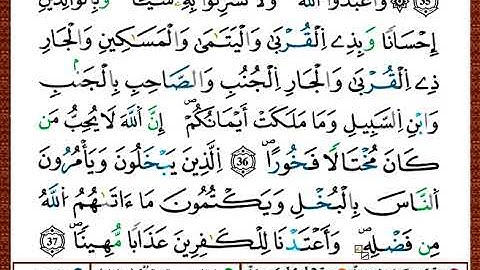 وَاعْبُدُوا اللَّهَ وَلَا تُشْرِكُوا بِهِ شَيْئًا وَبِالْوَالِدَيْنِ
إِحْسَانًا وَبِذِے اِلْقُرْبَىٰ وَالْيَتَامَىٰ وَالْمَسَاكِينِ وَالْجَارِ
ذِے اِلْقُرْبَىٰ وَالْجَارِ اِلْجُنُبِ وَالصَّاحِبِ بِالْجَنۢبِ
وَابْنِ اِلسَّبِيلِ وَمَا مَلَكَتْ أَيْمَانُكُمْۖ إِنَّ اَللَّهَ لَا يُحِبُّ مَن
كَانَ مُخْتَالًا فَخُورًاۖ 36 اِلَّذِينَ يَبْخَلُونَ وَيَأْمُرُونَ
اَلنَّاسَ بِالْبُخْلِ وَيَكْتُمُونَ مَا ءَاتَىٰهُمُ اُللَّهُ
مِن فَضْلِهِۖ وَأَعْتَدْنَا لِلْكَٰفِرِينَ عَذَابًا مُّهِينًاۖ 37